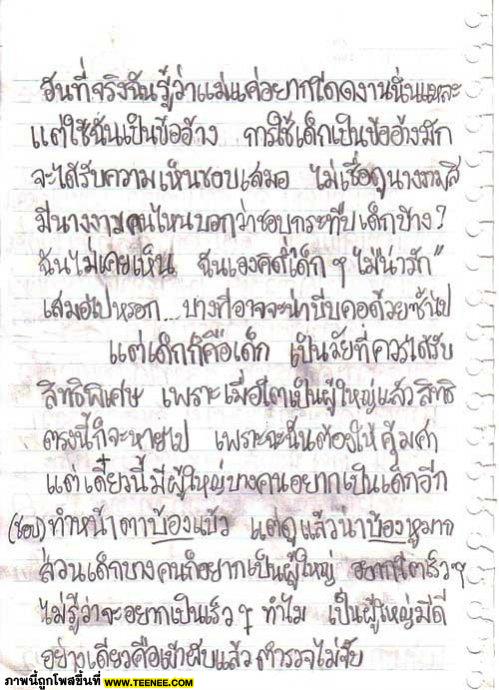 อันที่จริงฉันรู้ว่าแม่แค่อยากโดดงานนั่นแหละ
แต่ใช้ฉันเป็นข้ออ้าง การใช้เด็กเป็นข้ออ้างมัก
จะได้รับความเห็นชอบเสมอ ไม่เชื่อดูนางงามสิ
มีนางงามคนไหนบอกว่าชอบกระทืบเด็กบ้าง?
ฉันไม่เคยเห็น ฉันเองคิดว่าเด็ก ๆ ไม่น่ารัก"
เสมอไปหรอก... บางทีอาจจะน่าบีบคอด้วยซ้ำไป
แต่เด็กก็คือเด็ก เป็นวัยที่ควรได้รับ
สิทธิพิเศษ เพราะเมื่อโตเป็นผู้ใหญ่แล้วสิทธิ
ตรงนี้ก็จะหายไป เพราะฉะนั้นต้องใช้ให้คุ้มค่า
แต่เดี๋ยวนี้มีผู้ใหญ่บางคนอยากเป็นเด็กอีก
(ชอบ) ทำหน้าตาบ้องแบ๊ว แต่ดูแล้วน่าบ้องหูมาก
ส่วนเด็กบางคนก็อยากเป็นผู้ใหญ่ อยากโตเร็ว ๆ
ไม่รู้ว่าจะอยากเป็นเร็ว ๆ ทำไม เป็นผู้ใหญ่มีดี
อย่างเดียวคือเข้าผับแล้วตำรวจไม่จับ
ภาพนี้ถูกโพสขึ้นที่ WWW.TEENEE.COM